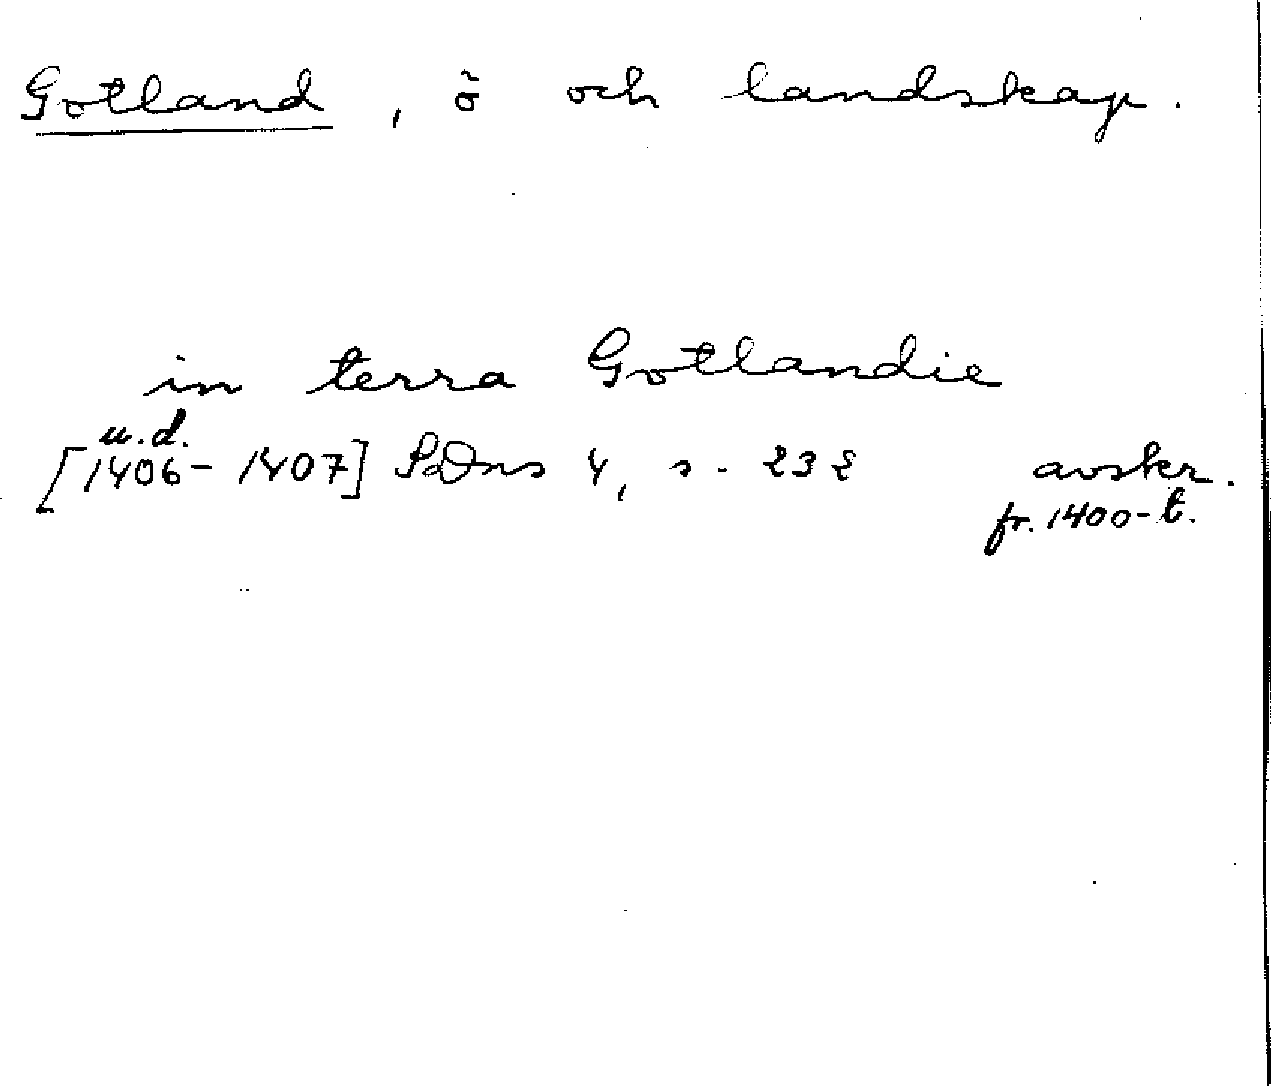 Gotland, ö och landskap.
in terra Gotlandie
u.d.
[1406-1407] SDns 4, s. 232 avskr.
fr. 1400-t.